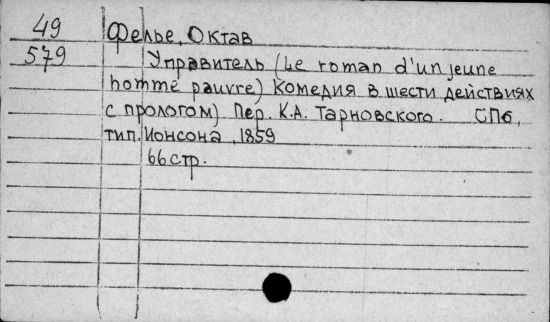 49 Фелье, Октав
579 Управитель (Le roman d'un jeune
homme pauvre) Комедия в шести действиях
с прологом) Пер. К.А. Тарновского. СПб,
тип. Ионсона, 1859
66 стр.